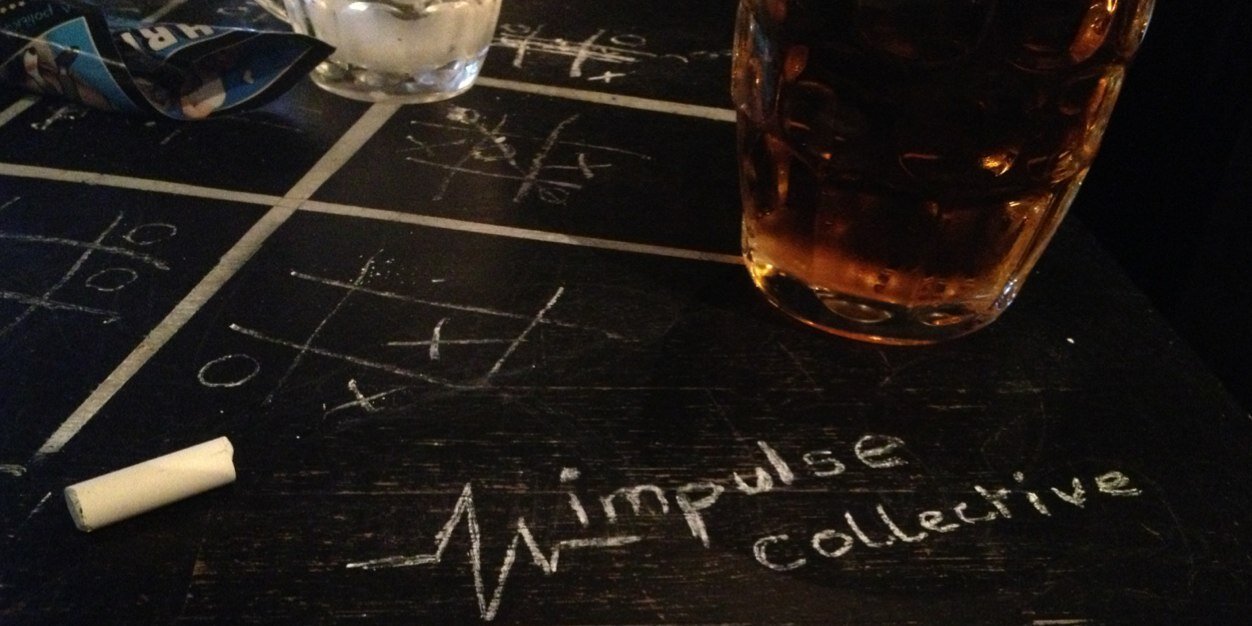 impulse
collective